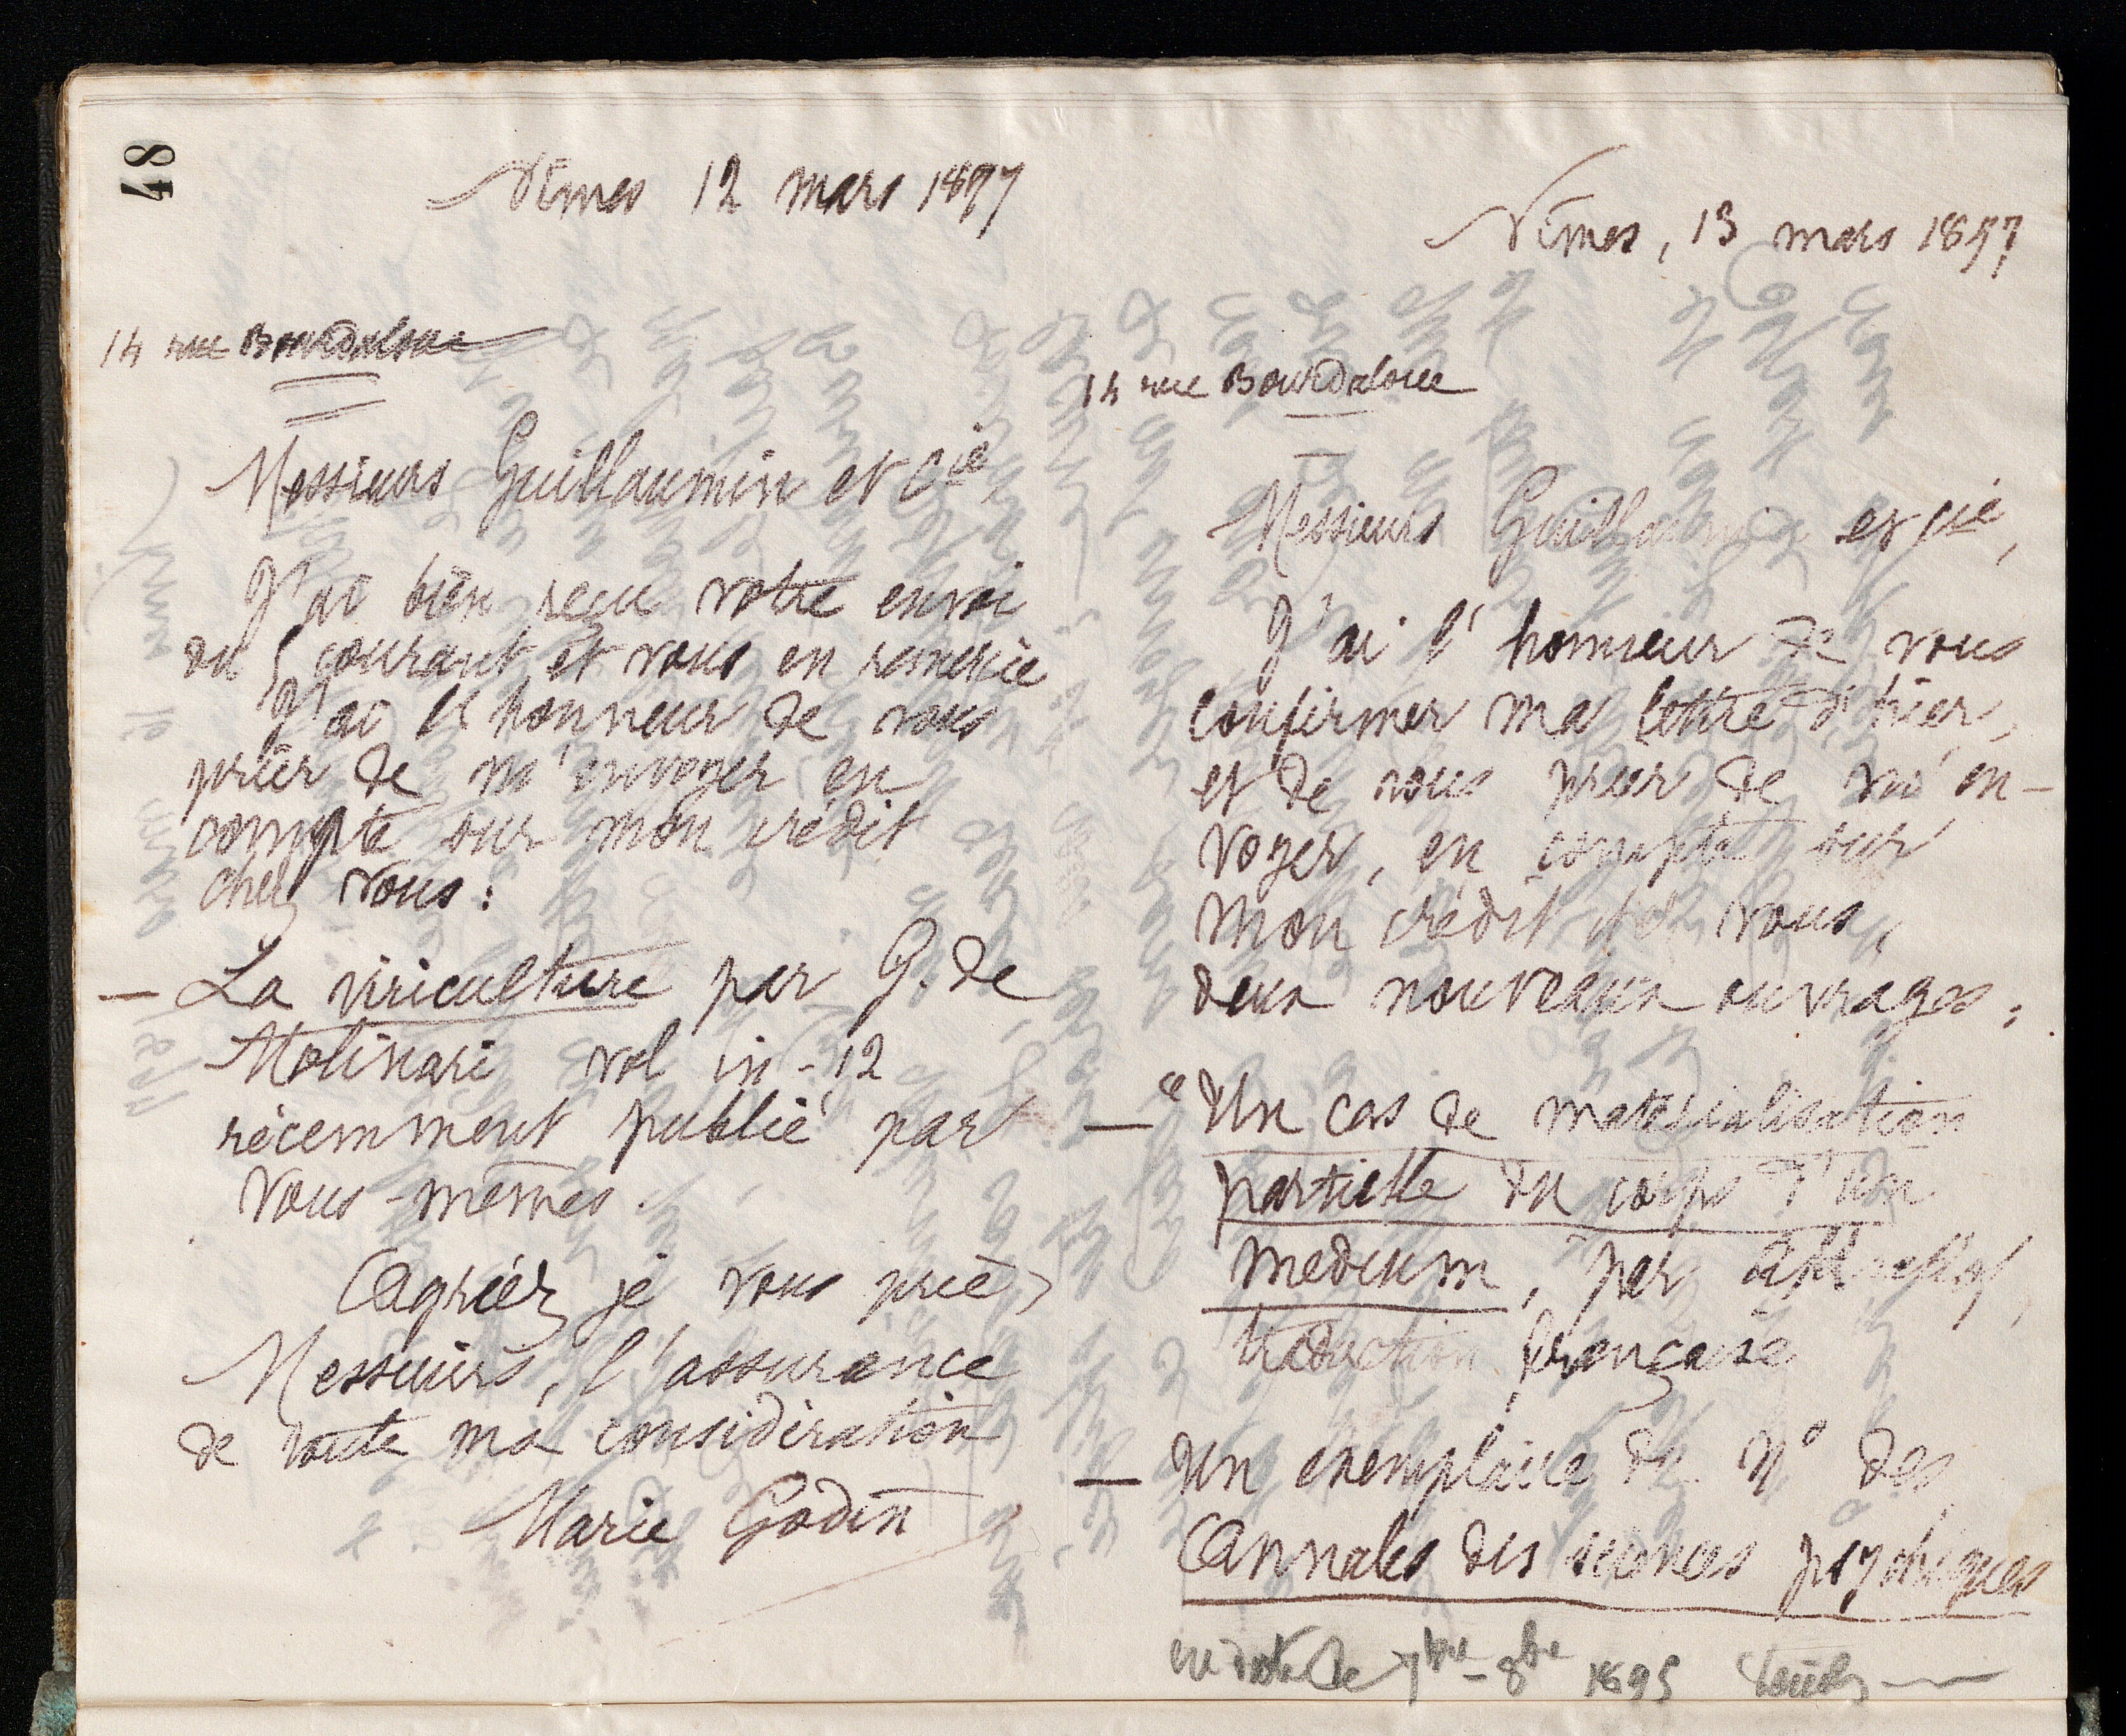 48
Nîmes 12 mars 1897
14 rue Bourdaloue
Messieurs Guillaumin et Cie
J'ai bien reçu votre envoi
du 5 courant et vous en remercie
J'ai l'honneur de vous
prier de m'envoyer en
compte sur mon crédit
chez vous :
— La viriculture par G. de
Molinari vol in-12
récemment publié par
vous-mêmes.
Agréez je vous prie,
Messieurs, l'assurance
de toute ma considération
Marie Godin
Nîmes, 13 mars 1897
14 rue Bourdaloue
Messieurs Guillaumin et Cie,
J'ai l'honneur de vous
confirmer ma lettre d'hier,
et de vous prier de m'en-
voyer, en compte sur
mon crédit vous,
deux nouveaux ouvrages :
— "Un cas de matérialisation
partielle du corps d'un
medium, par
traduction française
— Un exemplaire du No des
Annales des sciences psychiques
en date de 7bre-8bre 1895